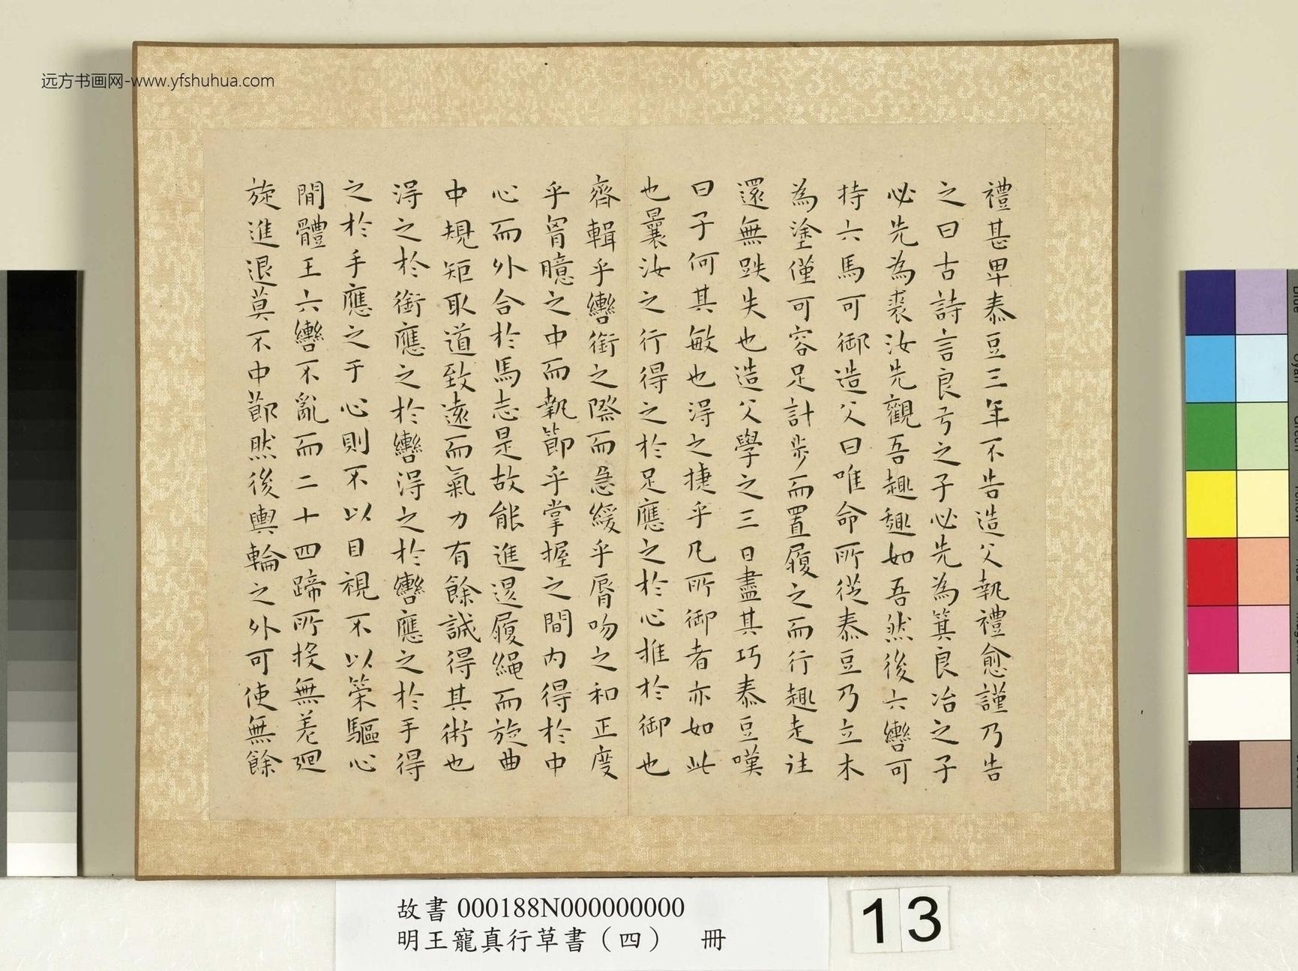 远方书画网-www.yfshuhua.com
禮甚卑泰豆三年不告造父執禮愈謹乃告
之曰古詩言良弓之子必先為箕良冶之子
必先為裘汝先觀吾趣趣如吾然後六轡可
持六馬可御造父曰唯命所從泰豆乃立木
為塗僅可容足計步而置履之而行趣走往
還無跌失也造父學之三日盡其巧泰豆嘆
曰子何其敏也淂之捷乎凡所御者亦如此
也曩汝之行得之於足應之於心推於御也
齊輯乎轡銜之際而急緩乎脣吻之和正度
乎胷臆之中而執節乎掌握之間內得於中
心而外合於馬志是故能進退履繩而旋曲
中規矩取道致遠而氣力有餘誠得其術也
淂之於銜應之於轡淂之於轡應之於手得
之於手應之于心則不以目視不以策驅心
間體王六轡不亂而二十四蹄所投無差廻
旋進退莫不中節然後輿輪之外可使無餘
故書 000188N000000000
明王寵真行草書（四） 冊
13